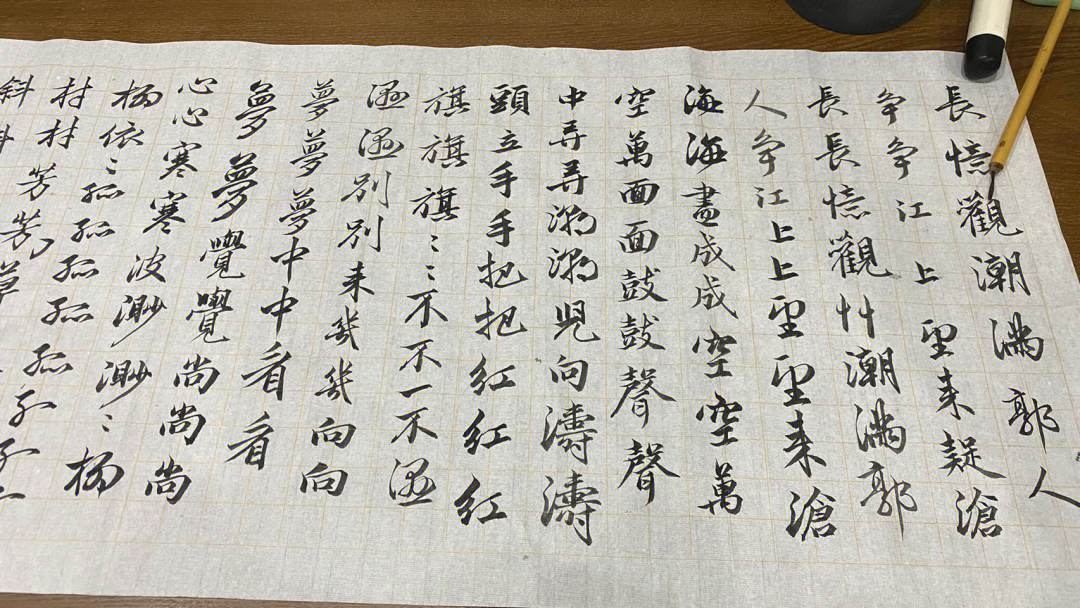 長憶觀潮滿郭人
争争江上望来疑滄
長長憶觀艹潮滿郭
人争江上上望望来滄
海海盡成成空空萬
空萬面面鼓鼓聲聲
中弄弄潮潮兒向濤濤
頭立手手把把紅紅紅
旗旗旗ミミ不不一不濕
濕濕別別来幾幾向向
夢夢夢中中看看
夢夢覺覺尚尚尚
心心寒寒波渺渺ミ楊
楊依ミ孤孤孤孤孤
村村芳芳草
斜斜